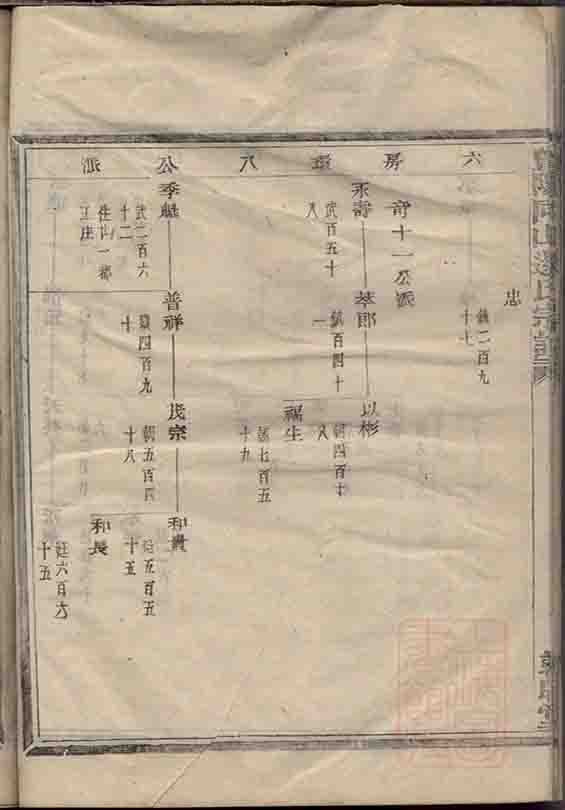 六房
八公派
忠
鎮二百九
十七
奇十一公派
永壽
武百五十
八
萃郎
鎮百四十
一
以彬
朝四百十
八
福生
七百五
十九
季艇
武二百六
十二
住山一都
正庄
普祥
鎮四百九
十
民宗
朝五百四
十八
和貴
廷五百五
十五
和長
廷六百六
十五
氏宗譜